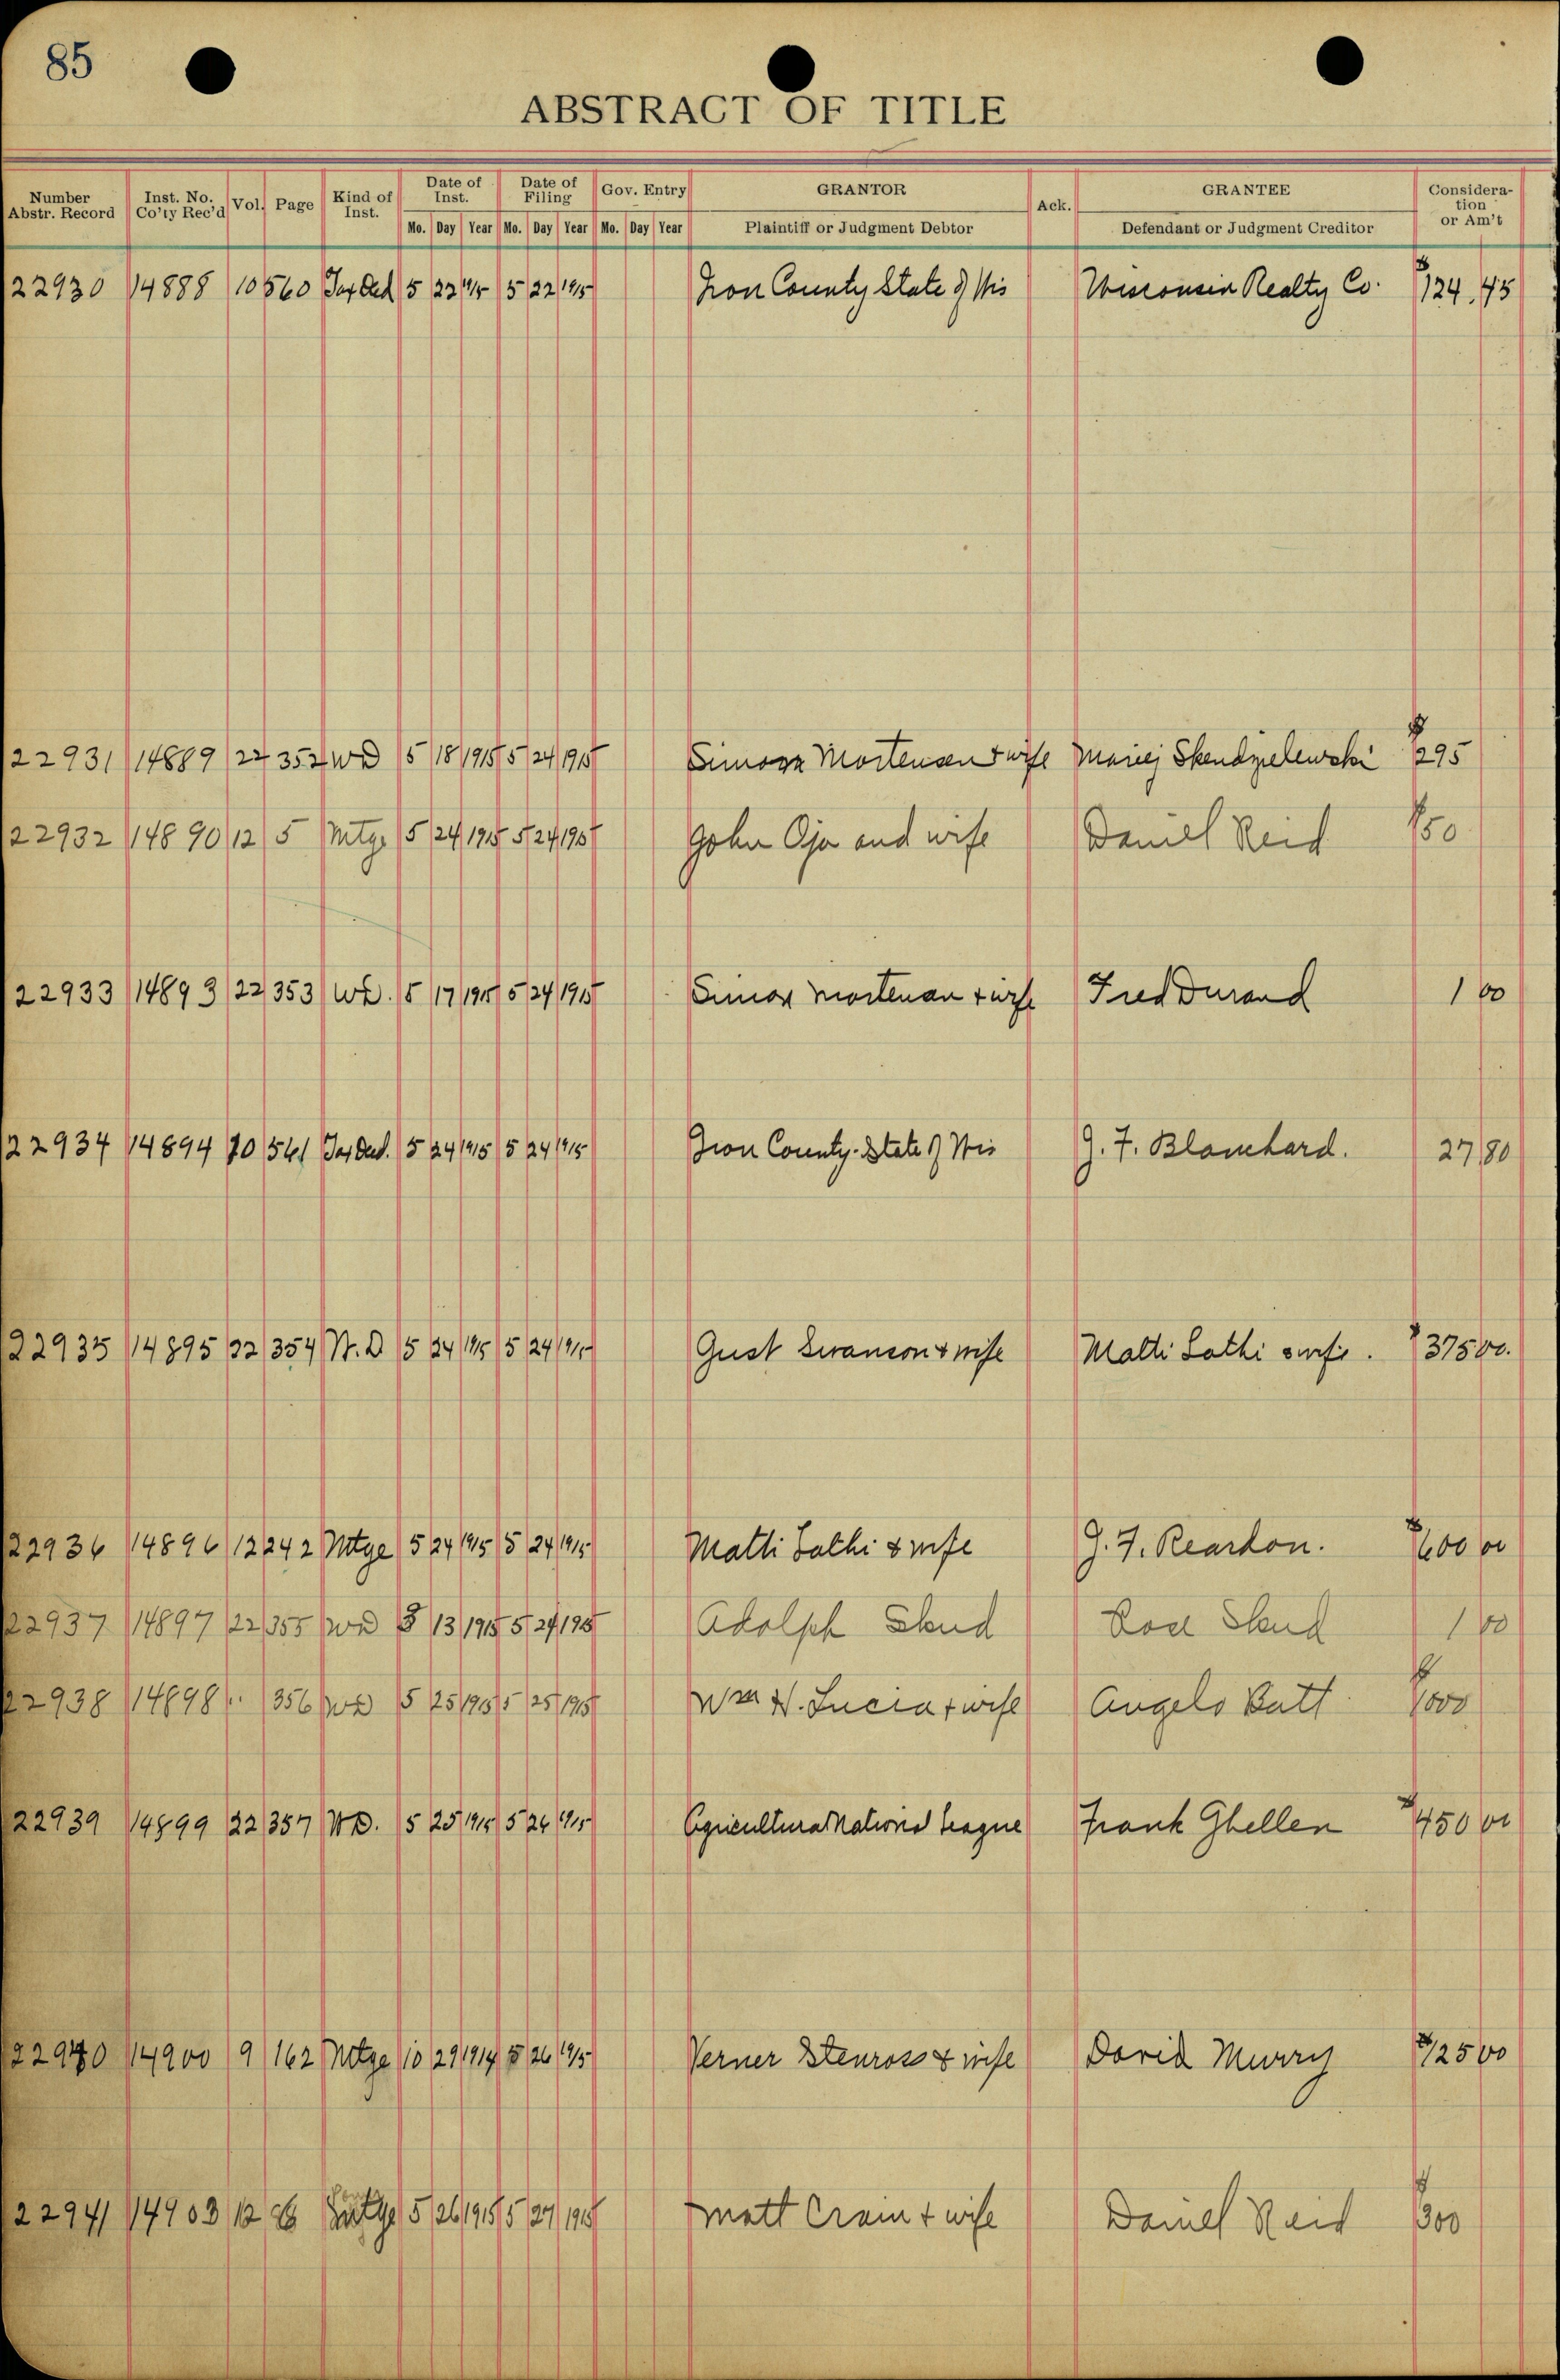 85
ABSTRACT OF TITLE
Number Abstr. Record Inst. No. Co'ty Rec'd Vol. Page Kind of Inst. Date of Inst. Date of Filing Gov. Entry GRANTOR Ack. GRANTEE Considera-tion or Am't
Mo. Day Year Mo. Day Year Mo. Day Year Plaintiff or Judgment Debtor Defendant or Judgment Creditor
22930 14888 10 560 Tax Ded 5 22 1915 5 22 1915 Iron County State of Wis Wisconsin Realty Co. $124.45
22931 14889 22 352 WD 5 18 1915 5 24 1915 Simon Mortensen + wife Maciej Skendzielewski $295
22932 14890 12 5 Mtge 5 24 1915 5 24 1915 John Oja and wife Daniel Reid $50
22933 14893 22 353 WD. 5 17 1915 5 24 1915 Simon Mortensen + wife Fred Durand 1 00
22934 14894 10 561 Tax Ded. 5 24 1915 5 24 1915 Iron County State of Wis J. F. Blanchard. 27 80
22935 14895 22 354 W.D 5 24 1915 5 24 1915 Gust Swanson & wife Matti Lathi & wife. $375 00.
22936 14896 12 242 Mtge 5 24 1915 5 24 1915 Matti Lathi & wife J. F. Reardon. $600 00
22937 14897 22 355 WD 13 1915 5 24 1915 Adolph Skud Rose Skud 1 00
22938 14898 " 356 WD 5 25 1915 5 25 1915 Wm H. Lucia + wife Angelo Batt $1000
22939 14899 22 357 WD. 5 25 1915 5 26 1915 Agricultural National League Frank Ghellen $450 00
22940 14900 9 162 Mtge 10 29 1914 5 26 1915 Verner Stenross & wife David Murry $125 00
22941 14903 12 Mtge 5 26 1915 5 27 1915 Matt Crain + wife Daniel Reid $300